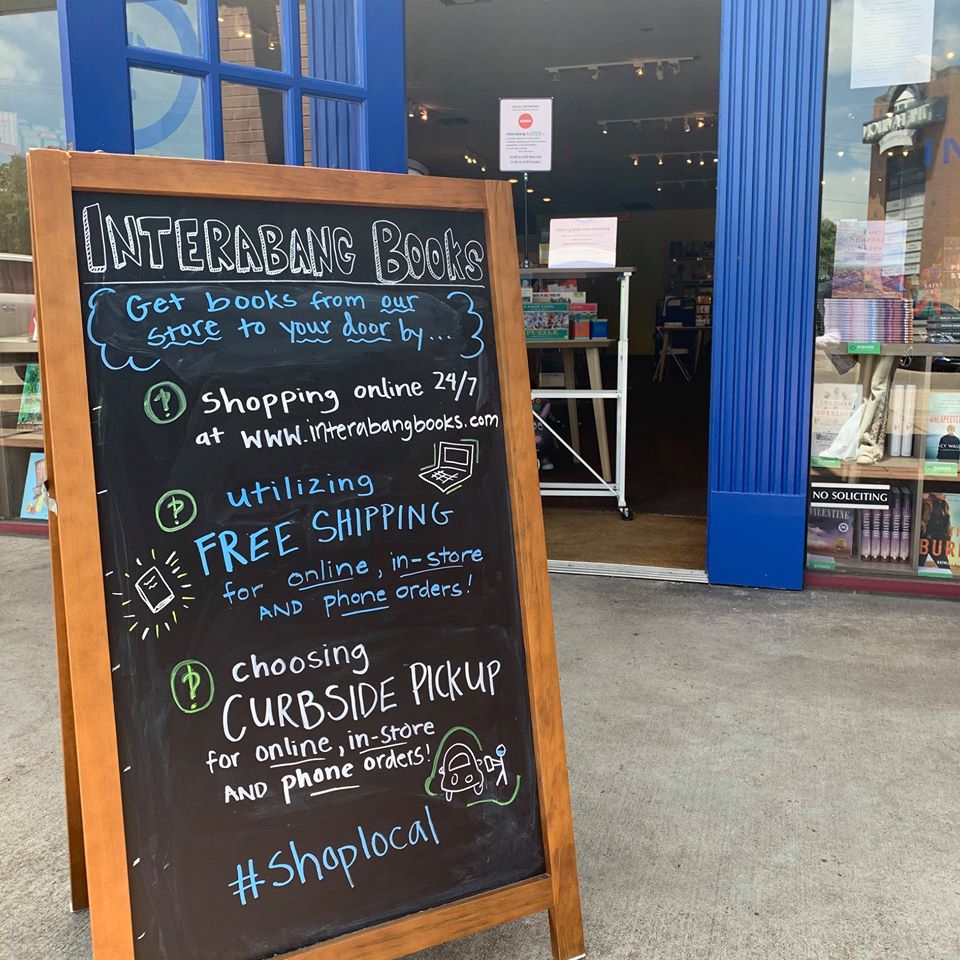 INTERABANG BOOKS
Get books from our
store to your door by...
Shopping online 24/7
at www.interabangbooks.com
utilizing
FREE SHIPPING
for online, in-store
AND phone orders!
choosing
CURBSIDE PICKUP
for online, in-store
AND phone orders!
#Shoplocal
Interabang is OPEN
PUZZLE
IN
Spacious
Skies
NO SOLICITING
BUR